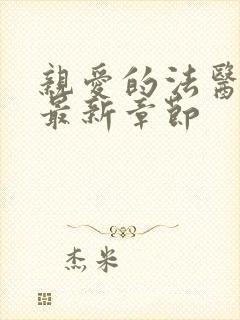 親愛的法醫
最新章節
杰米